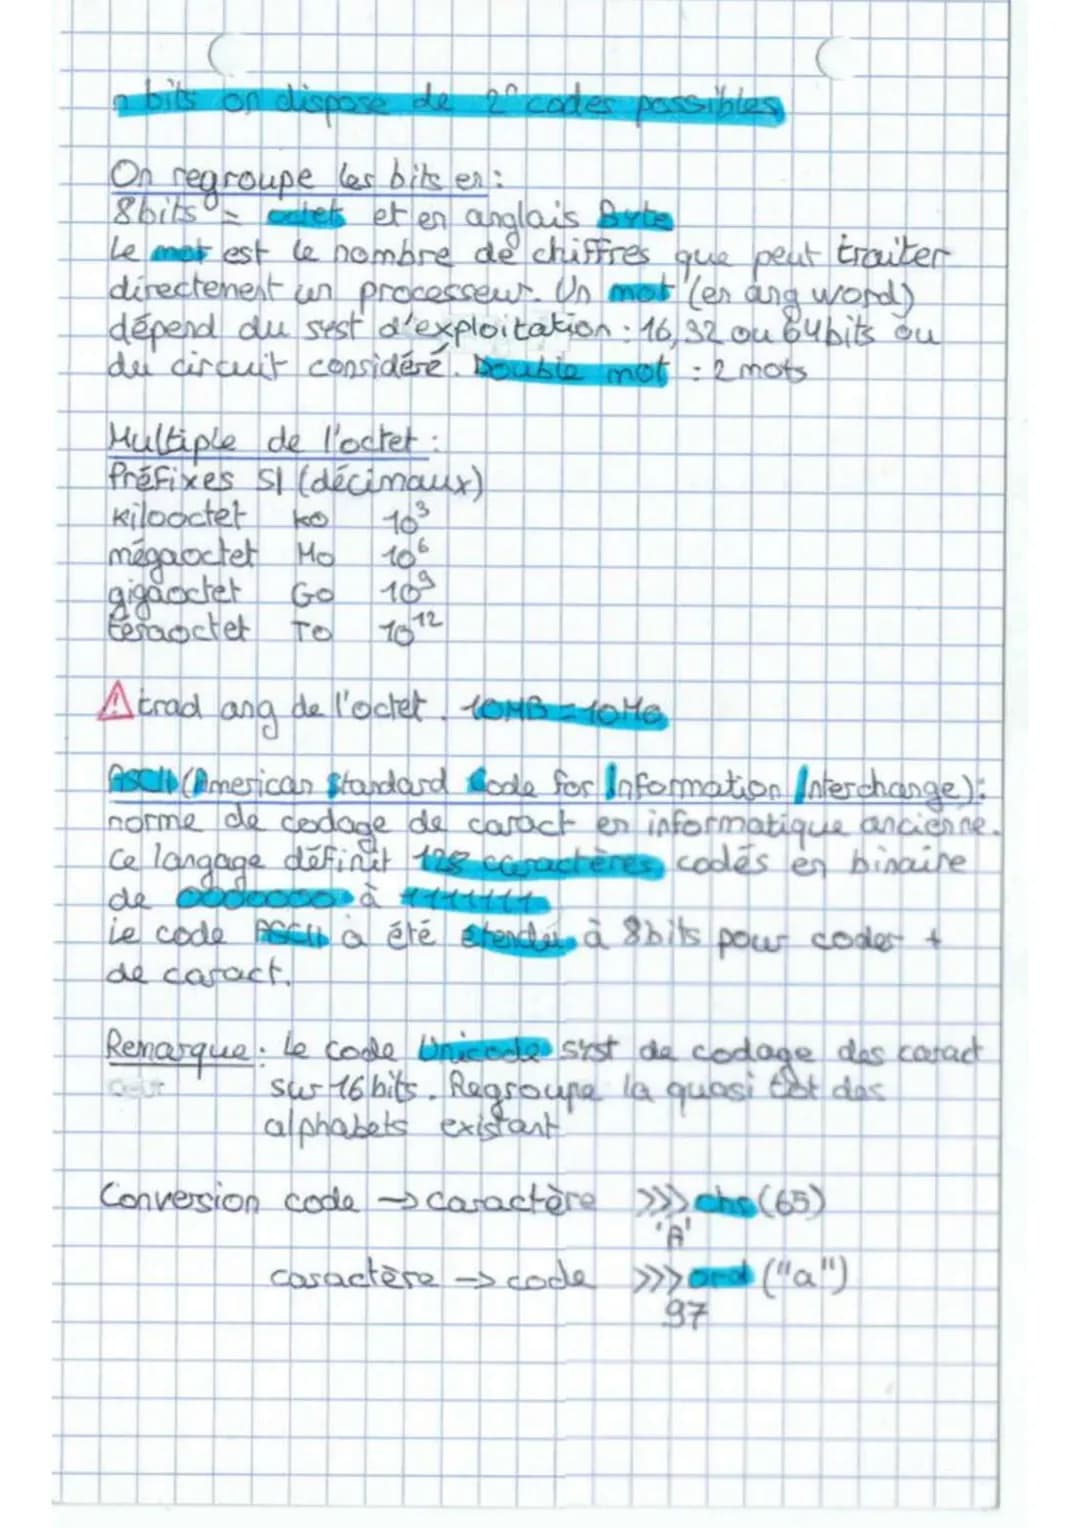 n bits on dispose de 2ⁿ codes possibles
On regroupe les bits en :
8bits = octet et en anglais Byte
Le mot est le nombre de chiffres que peut traiter
directement un processeur. Un mot (en ang word)
dépend du syst d'exploitation : 16, 32 ou 64bits ou
du circuit considéré. Double mot : 2 mots
Multiple de l'octet :
Préfixes SI (décimaux)
kilooctet ko 10³
mégaoctet Mo 10⁶
gigaoctet Go 10⁹
teraoctet To 10¹²
⚠ trad ang de l'octet. 10MB = 10Mo
ASCII (American Standard Code for Information Interchange) :
norme de codage de caract en informatique ancienne.
Ce langage définit 128 caractères codés en binaire
de 0000000 à 1111111
Le code ASCII a été étendu à 8bits pour coder +
de caract.
Remarque : Le code Unicode syst de codage des caract
sur 16 bits. Regroupe la quasi tot des
alphabets existant
Conversion code → caractère >>> chr(65)
'A'
caractère → code >>> ord("a")
97